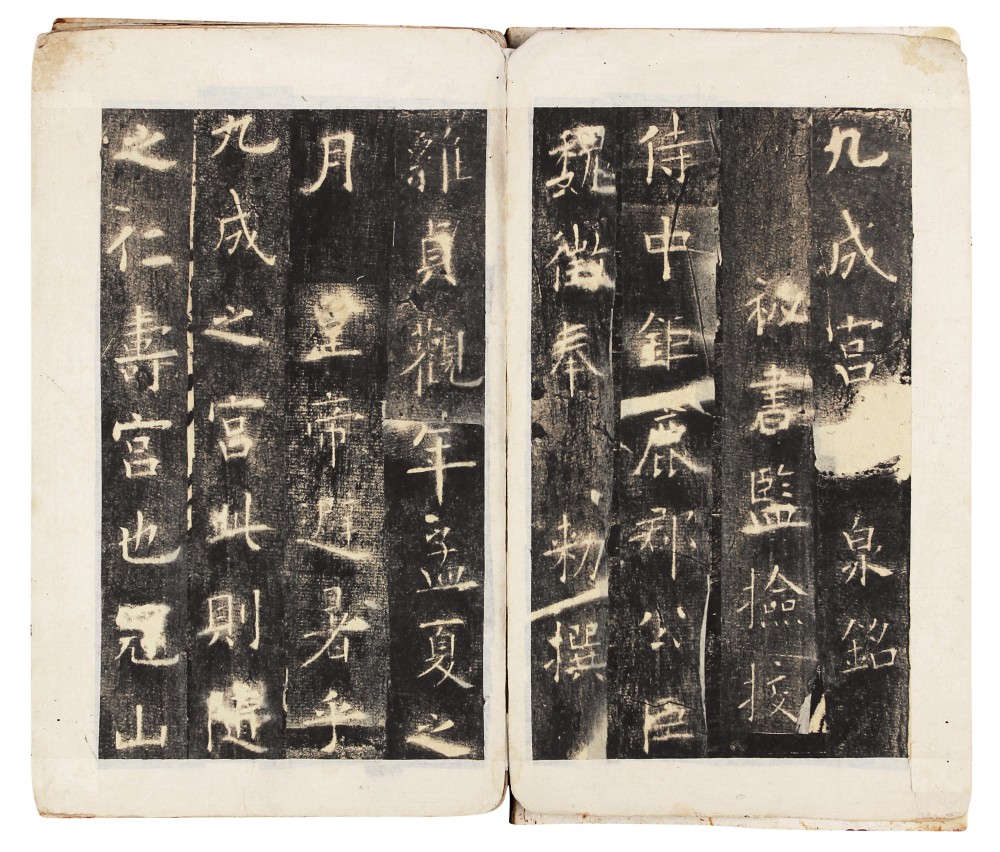 九成宮泉銘
秘書監撿挍
侍中鉅鹿郡公臣
魏徵奉勑撰
維貞觀年孟夏之
月皇帝避暑乎
九成之宮此則隨
之仁壽宮也冠山